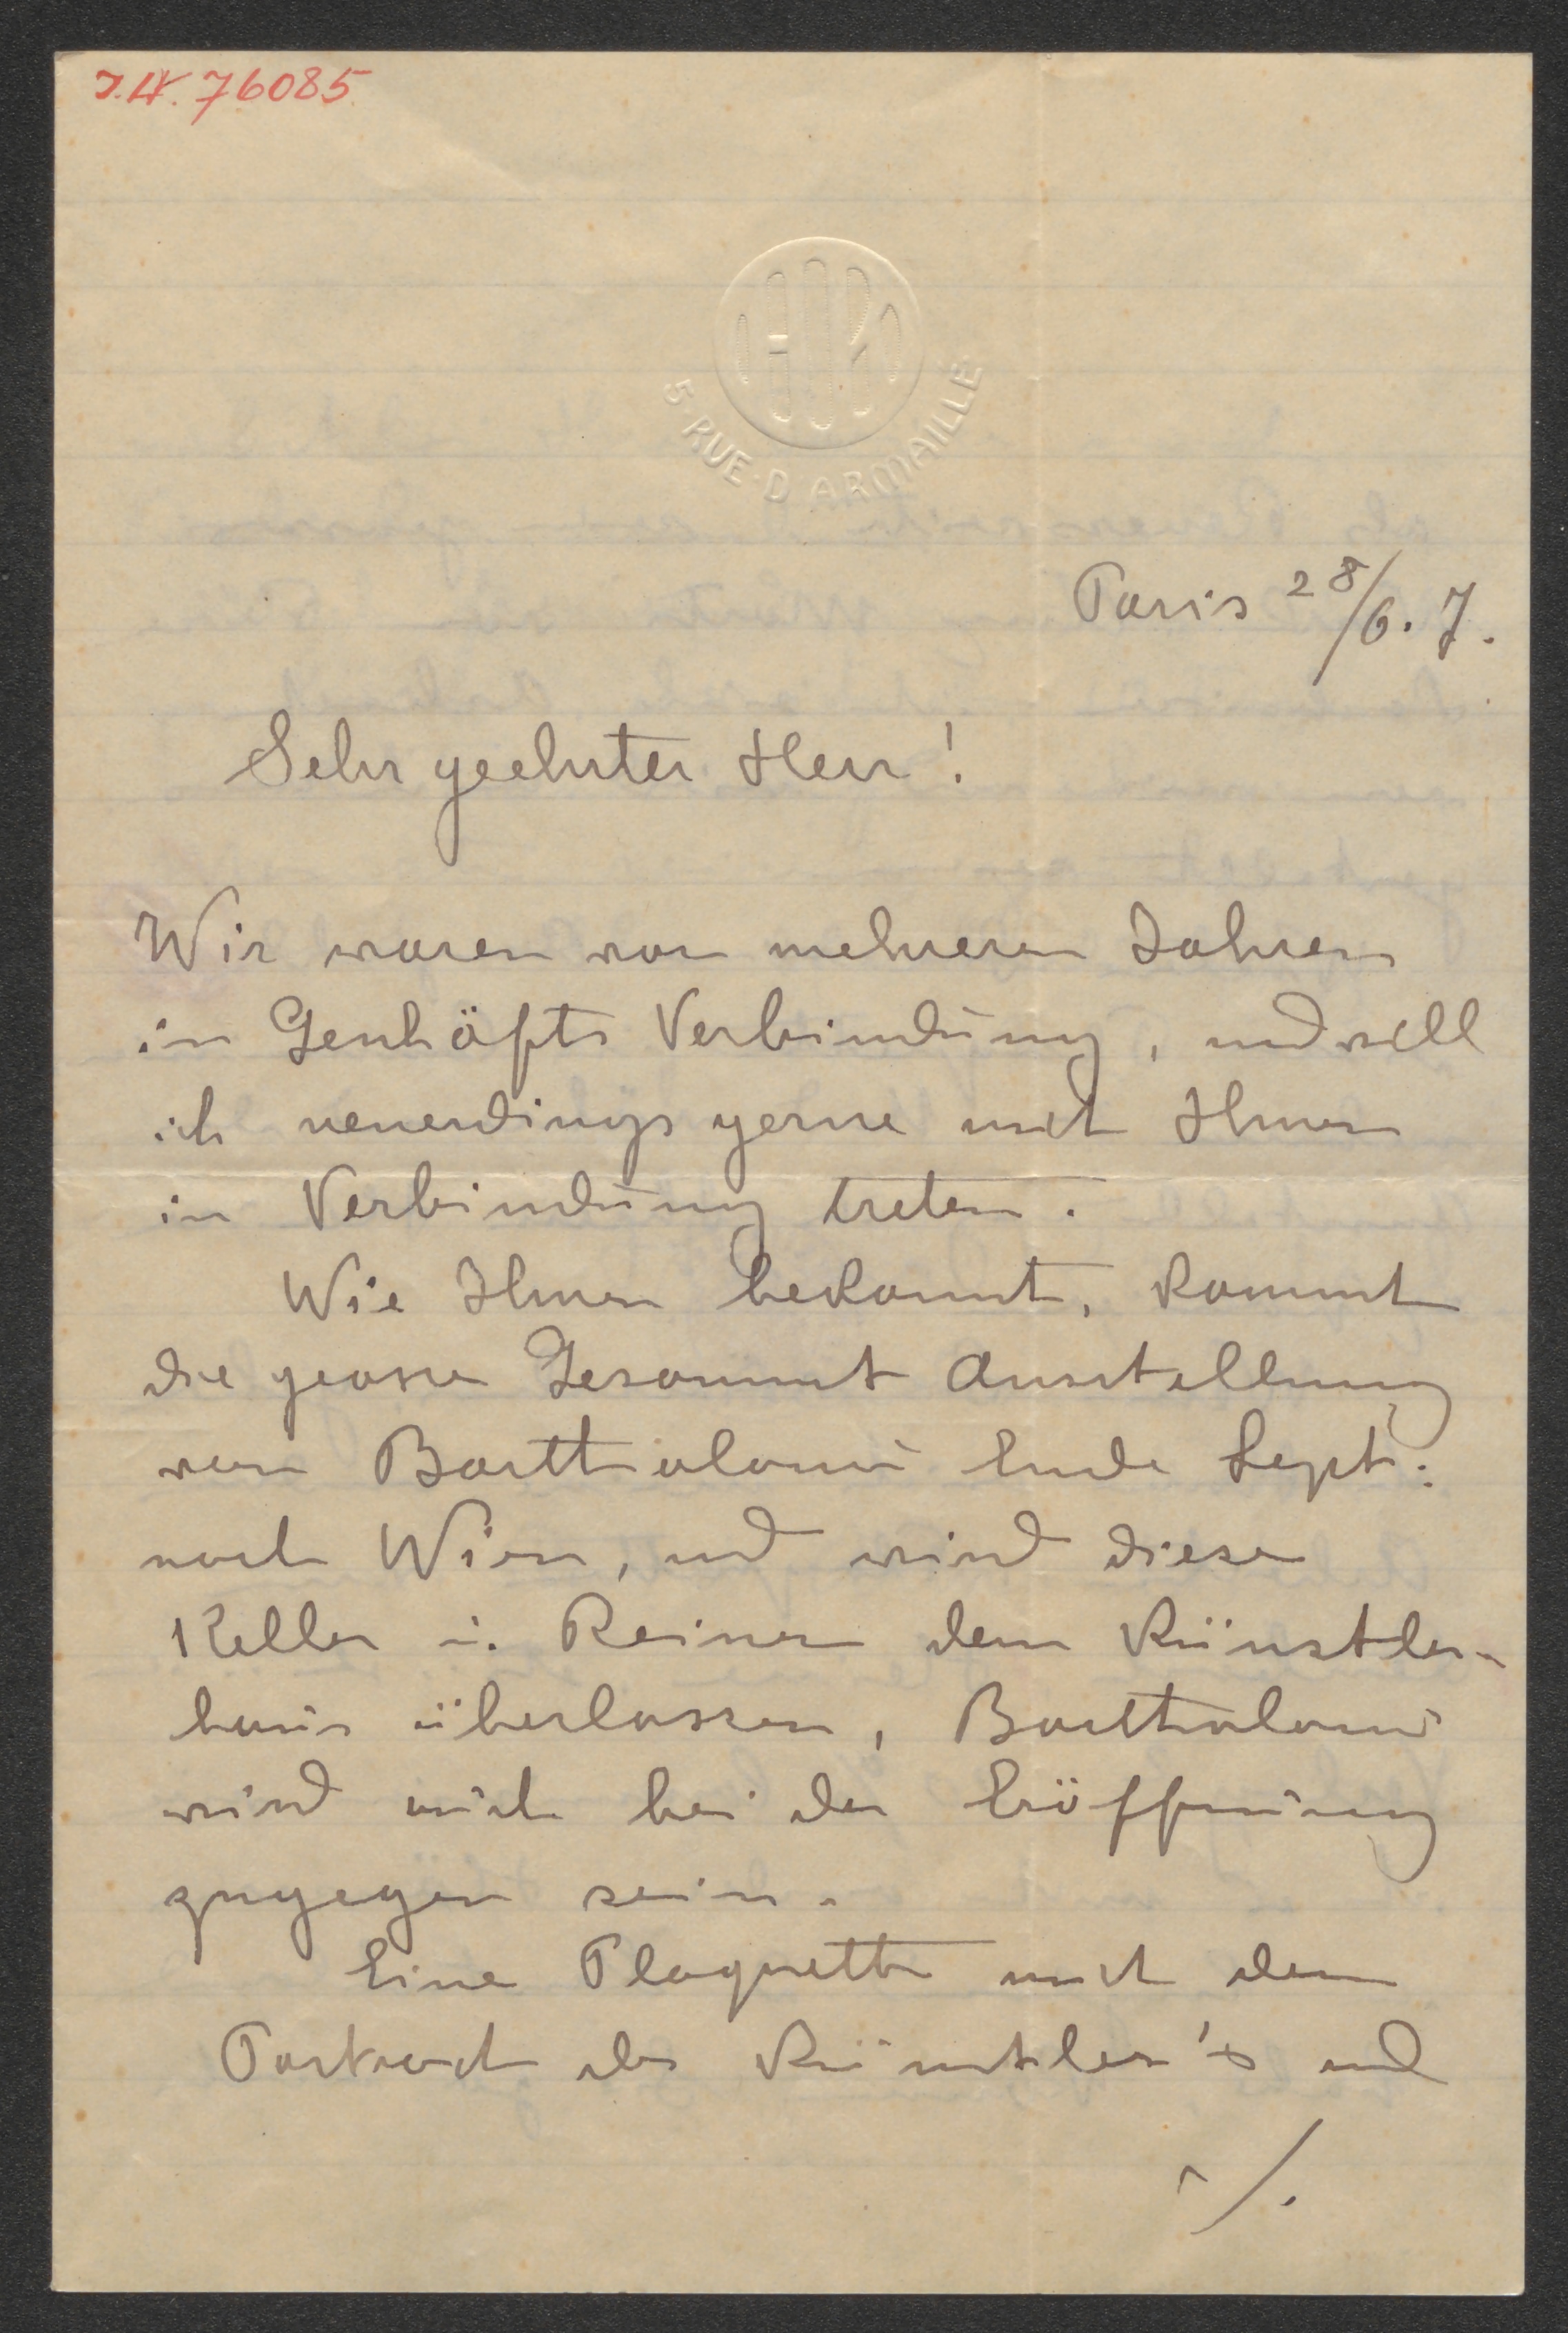 J.N. 76085
HUK
5·RUE·D ARMAILLÉ
Paris 28/6. 7.
Sehr geehrter Herr!
Wir waren vor mehreren Jahren
in Geschäfts Verbindung, und will
ich neuerdings gerne mit Ihnen
in Verbindung treten.
Wie Ihnen bekannt, kommt
die grosse Gesammt Ausstellung
von Bartholomé Ende Sept.
nach Wien, und wird diese
Keller u. Reiner dem Künstler-
haus überlassen, Bartholomé
wird auch bei der Eröffnung
zugegen sein.
Eine Plaquette mit dem
Portrait des Künstler's und
./.